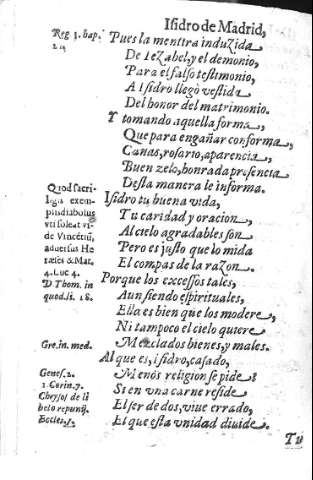 Isidro de Madrid,
Reg. 3. cap.
21
Pues la mentira induzida
De Iezabel, y el demonio,
Para el falso testimonio,
A Isidro llegò vestida
Del honor del matrimonio.
Y tomando aquella forma,
Que para engañar conforma,
Canas, rosario, aparencia,
Buen zelo, honrada presencia
Desta manera le informa.
Quod sacri-
legia exem-
pit diabolus
vti soleat vi-
de Vincẽtiũ,
aduersus He
ræses & Mat.
4. Luc 4.
D. Thom. in
quod. li. 18.
Isidro tu buena vida,
Tu caridad y oracion,
Al cielo agradables son
Pero es justo que lo mida
El compas de la razon.
Porque los excessos tales,
Aun siendo espirituales,
Ella es bien que los modere,
Ni tampoco el cielo quiere
Gre. in. med.
Mezclados bienes, y males.
Al que es, isidro, casado,
Genes. 2.
Menos religion se pide:
1 Corin. 7.
Si en una carne reside
Chrysos. de li
El ser de dos, viue errado,
belo repunij.
El que esta vnidad diuide.
Eccles. 25.
Tu